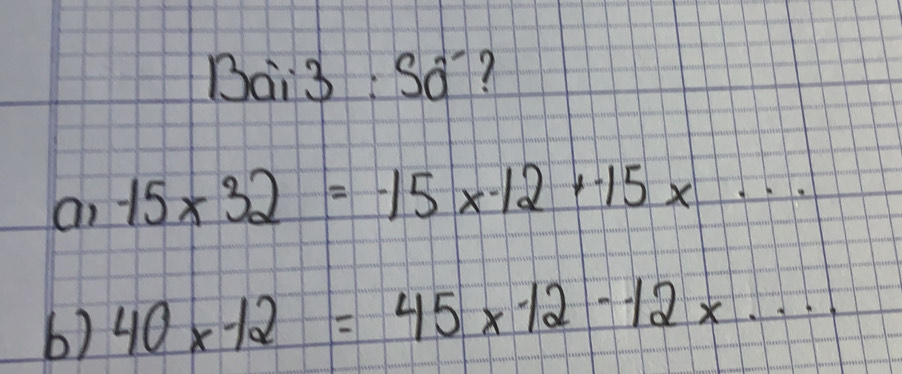 Bài 3 : Số ?
a, 15 x 32 = 15 x 12 + 15 x ...
b) 40 x 12 = 45 x 12 - 12 x ....